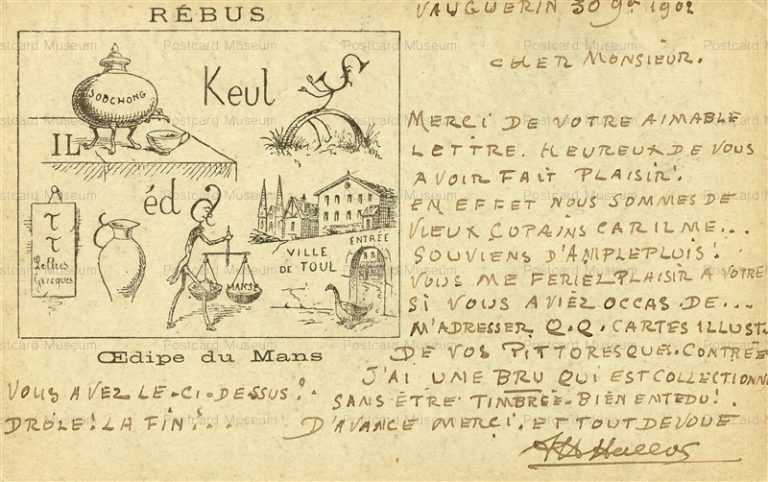 RÉBUS
SOUCHONG
IL
Keul
éd
τ
τ
Lettres
Grecques
MANSE
VILLE
DE TOUL
ENTRÉE
Œdipe du Mans
VOUS AVEZ LE-CI-DESSUS?
DRÔLE! LA FIN!...
30 9bre 1902
CHER MONSIEUR.
MERCI DE VOTRE AIMABLE
LETTRE. HEUREUX DE VOUS
AVOIR FAIT PLAISIR!
EN EFFET NOUS SOMMES DE
VIEUX COPAINS CAR IL ME...
SOUVIENS D'AMPLEPLUIS!
VOUS ME FERIEZ PLAISIR A VOTRE
SI VOUS AVIEZ OCCAS. DE...
M'ADRESSER Q.Q. CARTES ILLUST.
DE VOS PITTORESQUES CONTRÉE
J'AI UNE BRU QUI EST COLLECTIONN
SANS ÊTRE TIMBRÉE-BIEN ENTEDU!.
D'AVANCE MERCI. ET TOUT DEVOUE
Postcard Museum